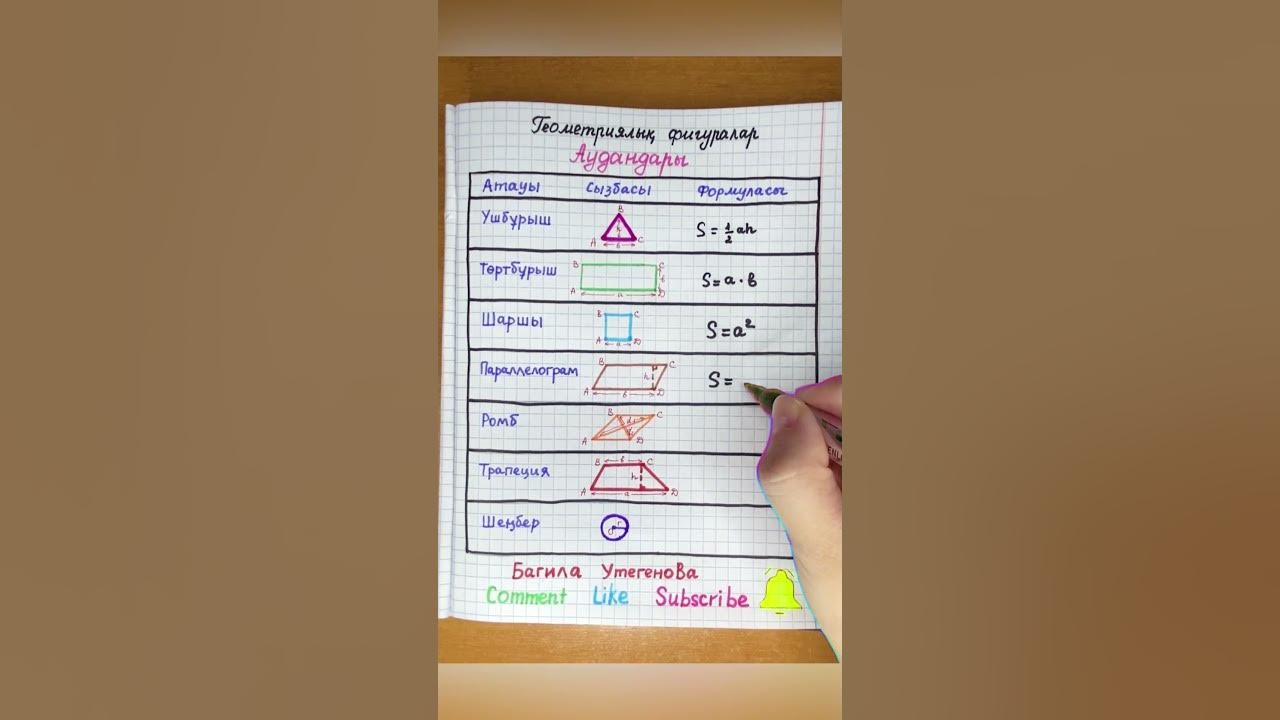 Геометриялық фигуралар
Аудандары
Атауы Сызбасы Формуласы
Үшбұрыш B h A в C S = 1/2 ah
Төртбұрыш B C в A a D S = a · в
Шаршы B C A a D S = a²
Параллелограм B C h A в D S =
Ромб B C d₁ A D
Трапеция B в C h A a D
Шеңбер r
Багила Утегенова
Comment Like Subscribe